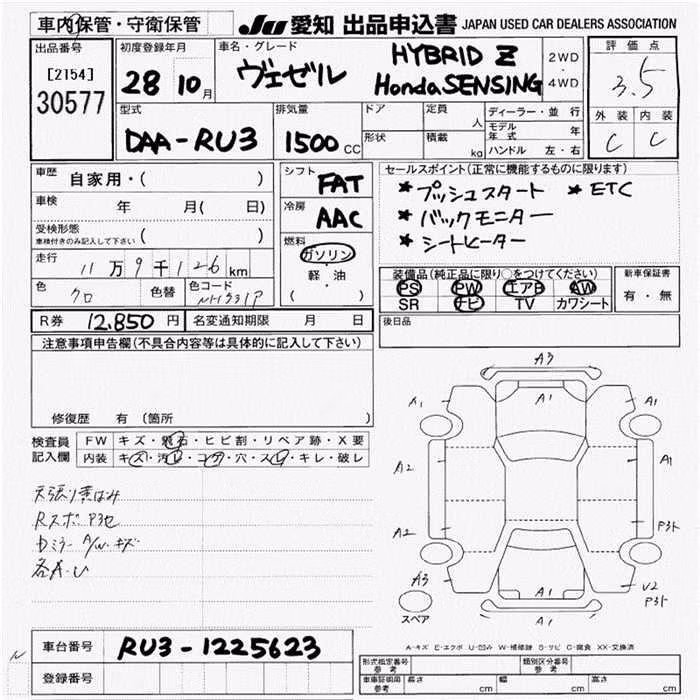 車内保管・守衛保管
JU 愛知 出品申込書 JAPAN USED CAR DEALERS ASSOCIATION
出品番号
[2154]
30577
初度登録年月
28 10月
車名・グレード
ヴェゼル
HYBRID Z
Honda SENSING
2WD
・
4WD
評価点
3.5
外装 内装
C C
型式
DAA-RU3
排気量
1500 CC
ドア
形状
定員 人
積載 kg
ディーラー・並行
モデル年式 年
ハンドル 左・右
車歴 自家用・( )
車検 年 月( 日)
受検形態
車検付きのみ記入して下さい ( )
走行 11万9千126 km
色 クロ 色替 色コード NH731P
シフト
FAT
冷房
AAC
燃料
ガソリン
・
軽・油
( )
セールスポイント(正常に機能するものに限ります)
★プッシュスタート ★ETC
★バックモニター
★シートヒーター
装備品(純正品に限り○をつけてください)
PS PW エアB AW
SR ナビ TV カワシート
新車保証書
有・無
R券 12,850円 名変通知期限 月 日
後日品
注意事項申告欄(不具合内容等は具体的に記入して下さい)
修復歴 有 (箇所 )
検査員
記入欄
FW キズ・飛石・ヒビ割・リペア跡・X要
内装 キズ・汚れ・コゲ・穴・スレ・キレ・破レ
Rスポ P3セ
Dミラー A/W・キズ
各A・U
A3
A1 A1 A1
A2 A1
A2 P3ト
A3 A1 U2
P3ト
A1
スペア
A-キズ E-エクボ U-凹み W-補修跡 S-サビ C-腐食 XX-交換済
車台番号 RU3-1225623
登録番号
型式指定番号
参考
類別区分番号
参考
車庫証明用
参考
長さ cm 幅 cm 高さ cm